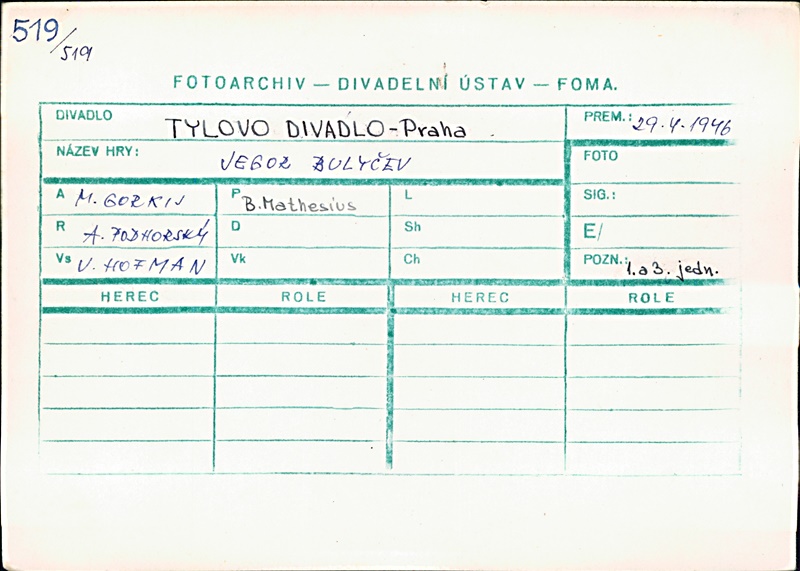 519/519
FOTOARCHIV — DIVADELNÍ ÚSTAV — FOMA.
DIVADLO TYLOVO DIVADLO-Praha. PREM.: 29.4.1946
NÁZEV HRY: JEGOR BULYČEV FOTO
A M. GORKIJ P B. Mathesius L SIG.:
R A. PODHORSKÝ D Sh E/
Vs V. HOFMAN Vk Ch POZN.: 1. a 3. jedn.
HEREC ROLE HEREC ROLE